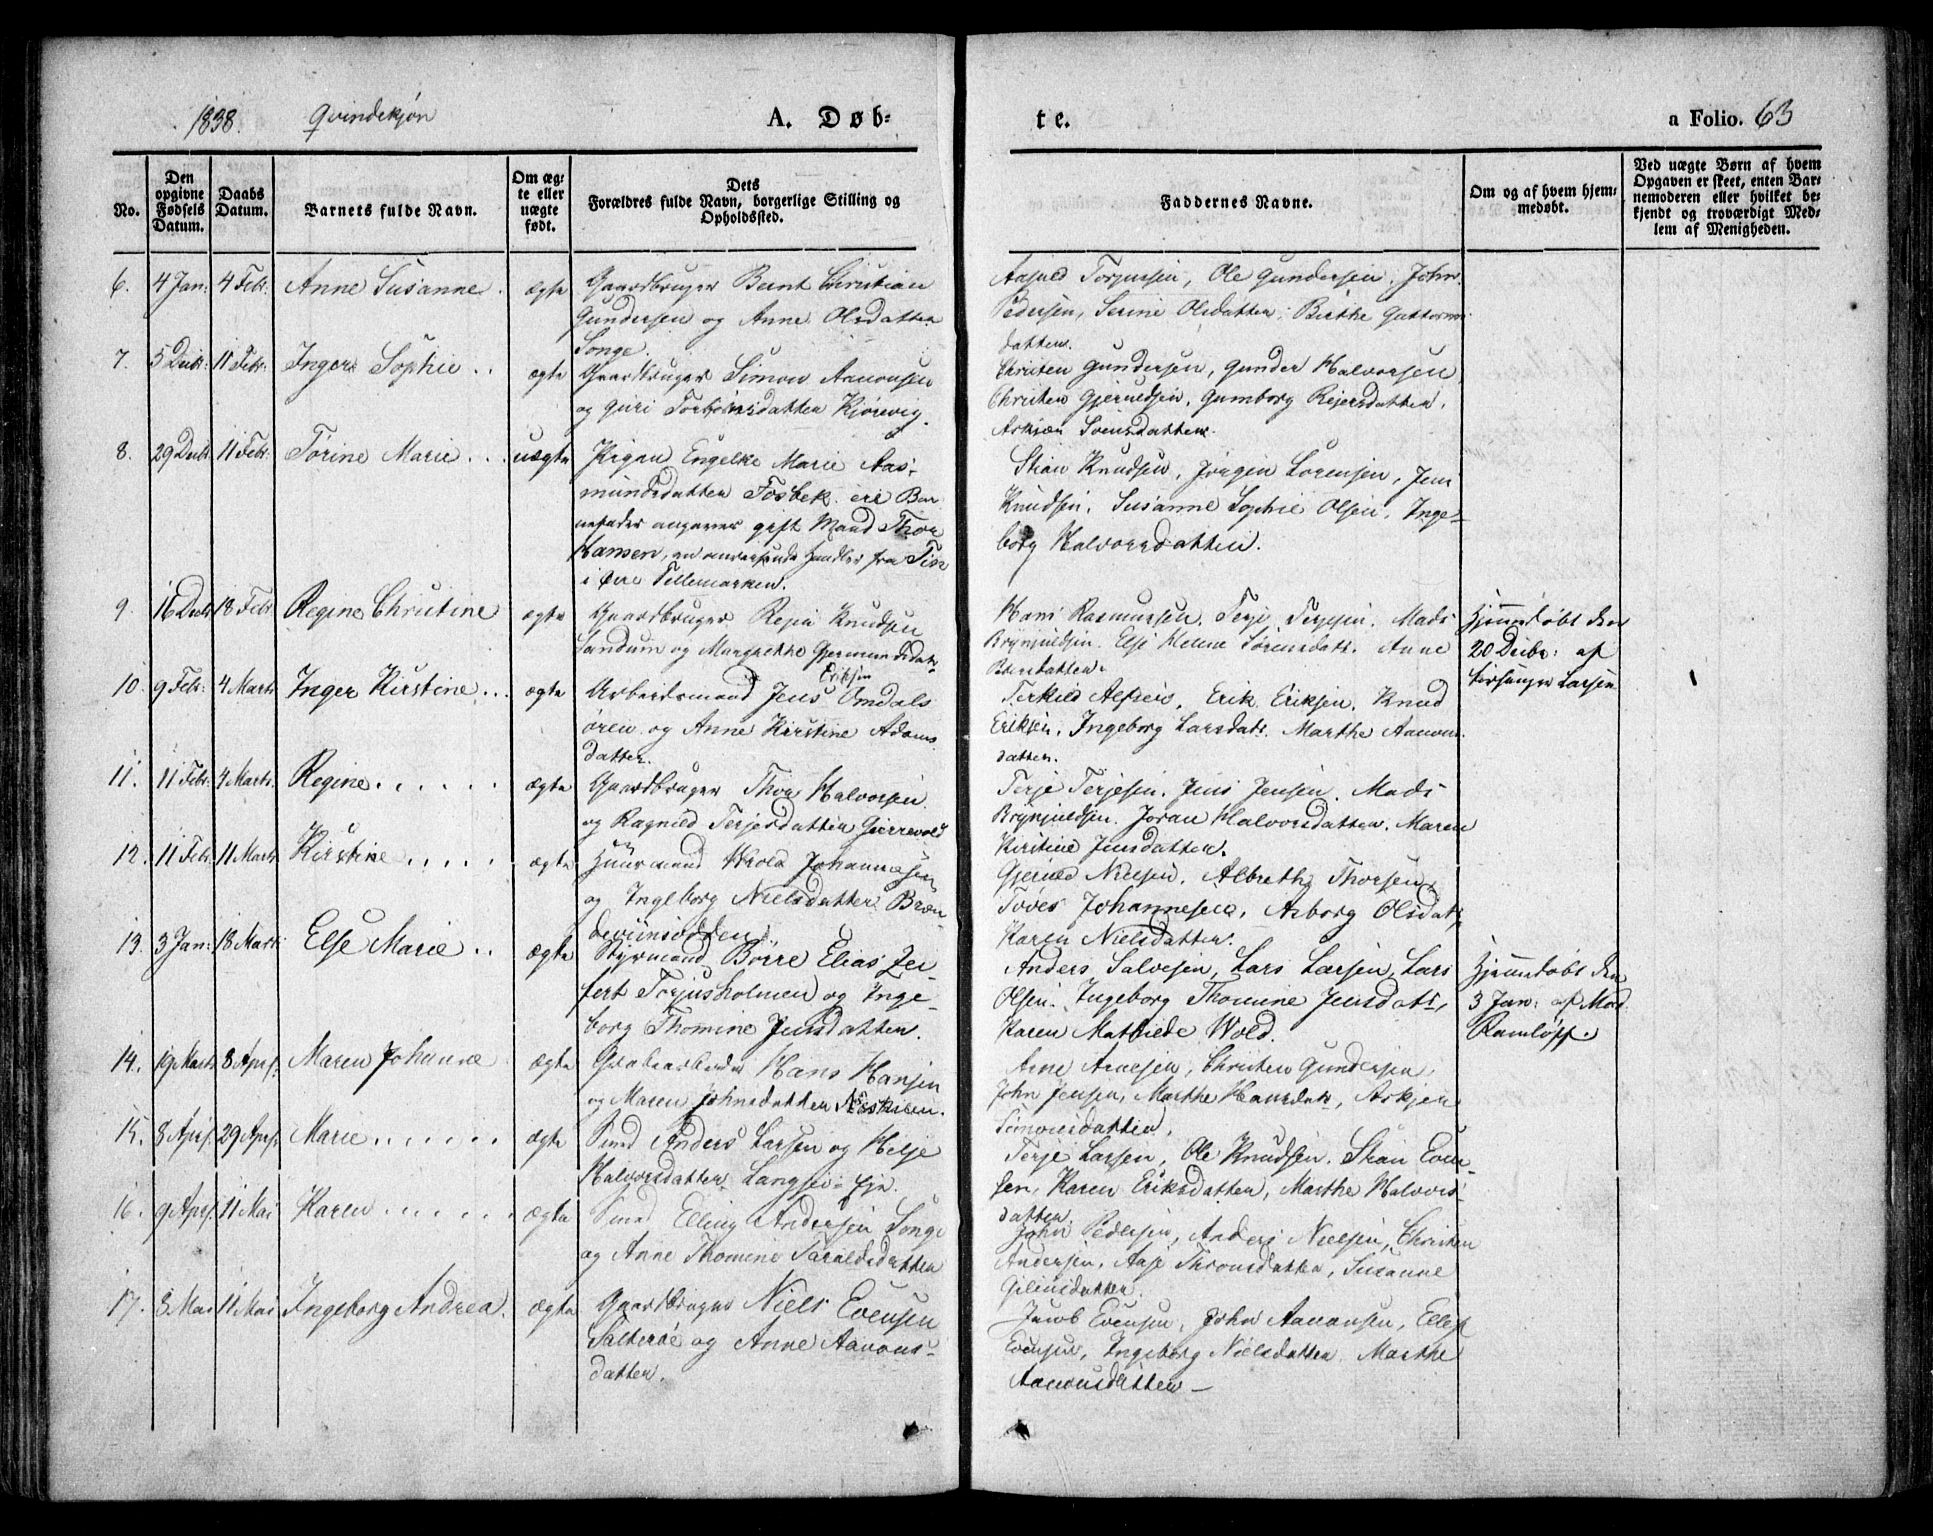 1838. Qvindekjøn A. Døb-
te. a Folio. 63
No.
Den
opgivne
Fødsels
Datum.
Daabs
Datum.
Barnets fulde Navn.
Om æg-
te eller
uægte
født.
Dets
Forældres fulde Navn, borgerlige Stilling og
Opholdssted.
Faddernes Navne.
Om og af hvem hjem-
medøbt.
Ved uægte Børn af hvem
Opgaven er skeet, enten Bar-
nemoderen eller hvilket be-
kjendt og troværdigt Med-
lem af Menigheden.
6. 4 Jan: 4 Febr. Anne Susanne. ægte Gaardbruger Bernt Christian
Gundersen og Anne Olsdatter
Songe.
Torjussen, Ole Gundersen, John
Pedersen, Serine Olsdatter, Birthe Guttorms
datter.
7. 5 Decbr: 11 Febr: Inger Sophie . . ægte Gaardbruger Simon Aanonsen
og Guri Torbjørnsdatter Kjørevig.
Christen Gundersen, Gunder Halvorsen,
Christen Gjeruldsen, Gumborg Reiersdatter,
Svensdatter.
8. 29 Decbr 11 Febr: Tørine Marie . . . uægte Pigen Engelke Marie Aas-
mundsdatter Fosbek. Bar
nefader angaves gift Mand Thor
Hansen, en omreisende Handler fra Tin
i Øvre Tellemarken.
Stian Knudsen, Jørgen Lorensen, Jens
Knudsen, Susanne Sophie Olsen, Inge-
borg Halvorsdatter.
9. 16 Decbr 18 Febr Regine Christine ægte Gaardbruger Reier Knudsen
Sandum og Margrethe Gjermundsdat
Hans Rasmussen, Terje Terjesen, Mads
Brynjuldsen, Else Helene Sørensdatr. Anne
Pedersdatter.
Hjemmedøbt den
20 Decbr: af
Kirkesanger Larsen
10. 9 Febr: 4 Marts Inger Kirstine . . . ægte Arbeidsmand Jens Eriksen Omdals
øren og Anne Kirstine Adams
datter.
Terkild Alfsen, Erik Eriksen, Knud
Eriksen, Ingeborg Larsdatr. Marthe Aanons
datter.
11. 11 Febr: 4 Marts. Regine . . . . . . ægte Gaardbruger Thor Halvorsen
og Ragnild Terjesdatter Gjerrevold
Terje Terjesen, Jens Jensen, Mads
Brynjuldsen, Joran Halvorsdatter, Maren
Kirstine Jensdatter.
12. 11 Febr. 11 Marts. Kirstine . . . . . ægte Huusmand Wrold Johannesen
og Ingeborg Nielsdatter Bræn
deviinsodden
Gjeruld Nielsen, Albreth Thorsen,
Toves Johannesen, Asborg Olsdatr,
Karen Nielsdatter.
13. 3 Jan: 18 Marts: Else Marie . . ægte Styrmand Børre Elias Zei-
fert Torjusholmen og Inge-
borg Thomine Jensdatter.
Anders Salvesen, Lars Larsen, Lars
Olsen, Ingeborg Thomine Jensdatr,
Karen Mathilde Wold.
Hjemmedøbt den
3 Jan: af Mad.
Ramløff.
14. 19 Marts 8 April. Maren Johanne ægte Hans Hansen
og Maren Johnsdatter Næskilen.
Arne Arnesen, Christen Gundersen,
John Jensen, Marthe Hansdatr, Askjer
Simonsdatter.
15. 8 April. 29 April. Marie . . . . . . ægte Smed Anders Larsen og Helje
Halvorsdatter Langsev Eje.
Terje Larsen, Ole Knudsen, Stian Even-
sen, Karen Eriksdatter, Marthe Halvors
datter.
16. 9 April. 11 Mai Karen . . . . . . ægte Smed Elling Andersen Songe
og Anne Thomine Taraldsdatter
John Pedersen, Anders Nielsen, Christen
Andersen, Aase Thronsdatter, Susanne
datter.
17. 3 Mai 11 Mai Ingeborg Andrea. ægte Gaardbruger Niels Evensen
Salterøe og Anne Aanons-
datter.
Jacob Evensen, John Aanonsen, Ellef
Evensen, Ingeborg Nielsdatter, Marthe
Aanonsdatter —